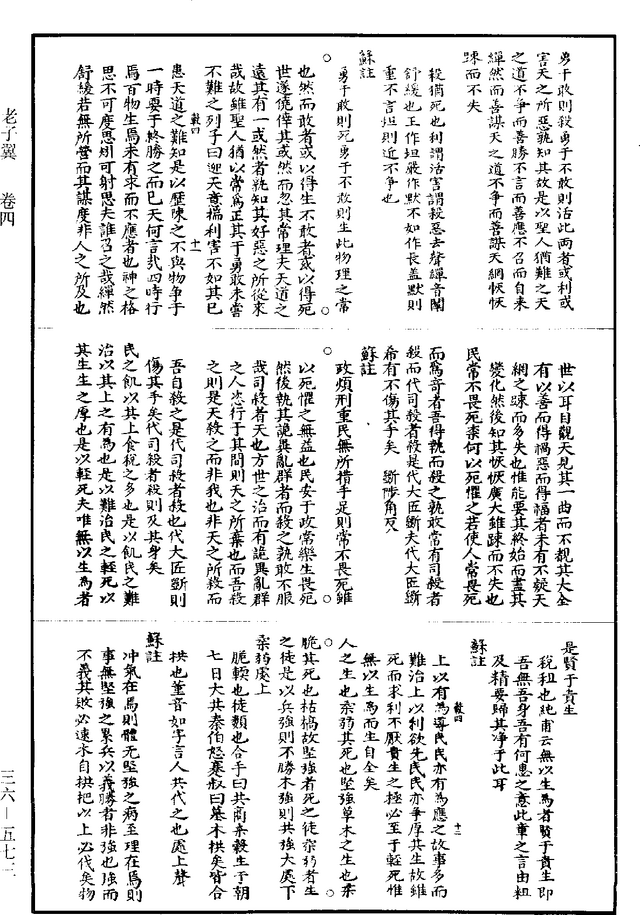 勇于敢則殺勇于不敢則活此兩者或利或
害天之所惡孰知其故是以聖人猶難之天
之道不爭而善勝不言而善應不召而自來
繟然而善謀天之道不爭而善謀天網恢恢
踈而不失
殺猶死也利謂活害謂殺惡去聲繟音闡
舒緩也王作坦嚴作默不如作長蓋默則
重不言坦則近不爭也
蘇註
勇于敢則死勇于不敢則生此物理之常
也然而敢者或以得生不敢者或以得死
世遂僥倖其或然而忽其常理夫天道之
遠其有一或然者孰知其好惡之所從來
哉故雖聖人猶以常爲正其于勇敢未嘗
不難之列子曰迎天意揣利害不如其已
患天道之難知是以歷陳之不與物爭于
一時要于終勝之而已天何言哉四時行
焉百物生焉未有求而不應者也神之格
思不可度思矧可射思夫誰召之哉繟然
舒緩若無所營而其謀度非人之所及也
世以耳目觀天見其一曲而不覩其大全
有以善而得禍惡而得福者未有不疑天
網之踈而多失也惟能要其終始而盡其
變化然後知其恢恢廣大雖踈而不失也
民常不畏死柰何以死懼之若使人常畏死
而爲奇者吾得執而殺之孰敢常有司殺者
殺而代司殺者殺是代大匠斲夫代大匠斲
希有不傷其手矣　斲陟角反
蘇註
政煩刑重民無所措手足則常不畏死雖
以死懼之無益也民安于政常樂生畏死
然後執其詭異亂群者而殺之孰敢不服
哉司殺者天也方世之治而有詭異亂群
之人恣行于其間則天之所棄也而吾殺
之則是天殺之而非我也非天之所殺而
吾自殺之是代司殺者殺也代大匠斲則
傷其手矣代司殺者殺則及其身矣
民之飢以其上食稅之多也是以飢民之難
治以其上之有爲也是以難治民之輕死以
其生生之厚也是以輕死夫唯無以生爲者
是賢于貴生
稅租也純甫云無以生爲者賢于貴生即
吾無吾身吾有何患之意此章之言由粗
及精要歸其淨于此耳
蘇註
上以有爲導民民亦有爲應之故事多而
難治上以利欲先民民亦爭厚其生故雖
死而求利不厭貴生之極必至于輕死惟
無以生爲而生自全矣
人之生也柔弱其死也堅強草木之生也柔
脆其死也枯槁故堅強者死之徒柔弱者生
之徒是以兵強則不勝木強則共強大處下
柔弱處上
脆輭也徒類也合手曰共商桑榖生于朝
七日大共秦伯怒蹇叔曰墓木拱矣皆合
拱也董音如字言人共代之也處上聲
蘇註
冲氣在焉則體无堅強之病至理在焉則
事無堅強之累兵以義勝者非強也強而
不義其敗必速木自拱把以上必伐矣物
老子翼　卷四
三六—五七三